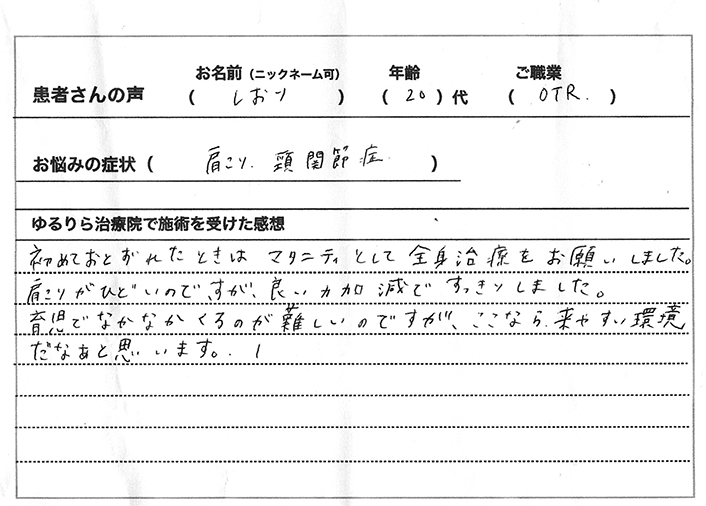 患者さんの声 お名前（ニックネーム可）（ しおり ） 年齢（ 20 ）代 ご職業（ OTR. ）
お悩みの症状（ 肩こり、顎関節症 ）
ゆるりら治療院で施術を受けた感想
初めておとずれたときは マタニティとして 全身治療をお願いしました。
肩こりがひどいのですが、良い力加減ですっきりしました。
育児でなかなかくるのが難しいのですが、ここなら、来やすい環境
だなぁと思います。